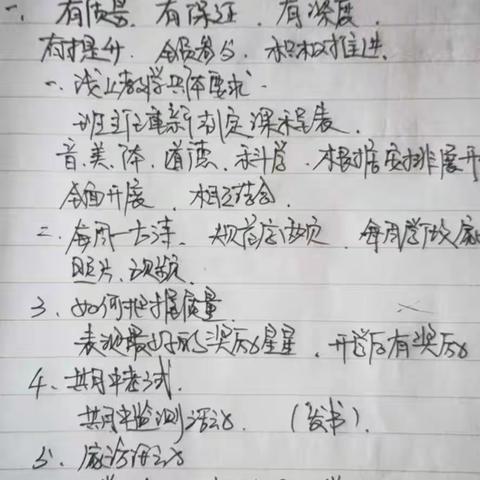 一、有质量、有保证、有深度、
有提升、全员参与、积极推进.
一、线上教学具体要求.
班主任重新制定课程表.
音、美、体、道德、科学、根据安排展开
全面开展、相互结合.
二、每周一古诗、规范字两页、每周学校
照片、视频.
3、如何把握质量
表现最好的奖励星星、开学后有奖励
4、共同体考试.
共同体监测活动. (发书).
5、